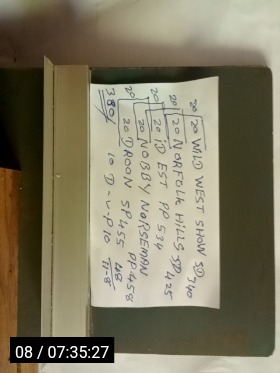 20 20 WILD WEST SHOW SD 340
20 20 NORFOLK HILLS SD 425
20 20 ID EST PP 534
20 20 NOBBY NORSEMAN PP 458
20 DROON SP 455
380/ 10 D-v-P10 11-8
08 / 07:35:27